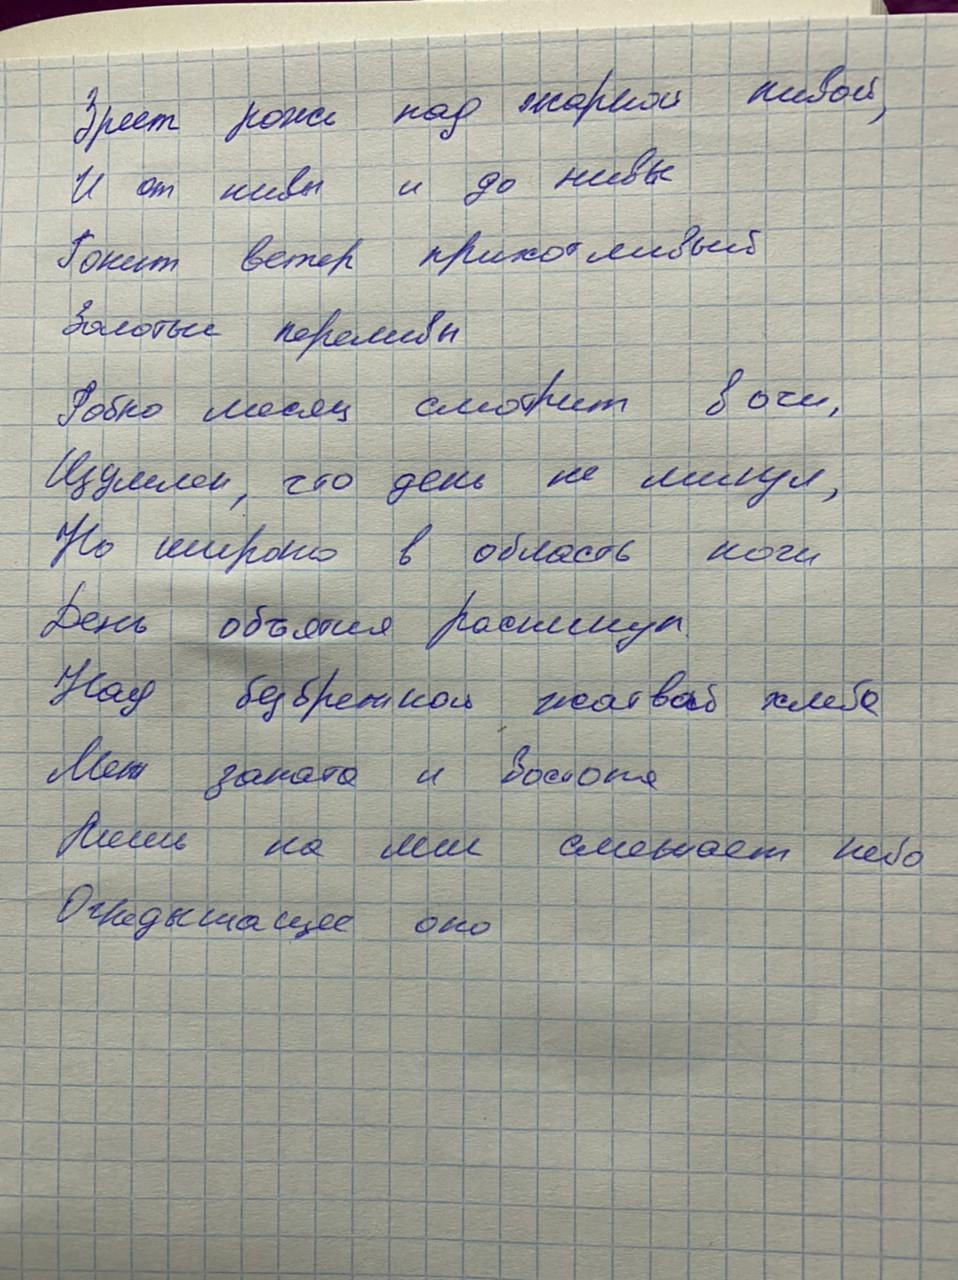 Зреет рожь над жаркой нивой,
И от нивы и до нивы
Гонит ветер прихотливый
Золотые переливы
Робко месяц смотрит в очи,
Изумлен, что день не минул,
Но широко в область ночи
День объятия раскинул.
Над безбрежной жатвой хлеба
Меж заката и востока
Лишь на миг смежает небо
Огнедышащее око